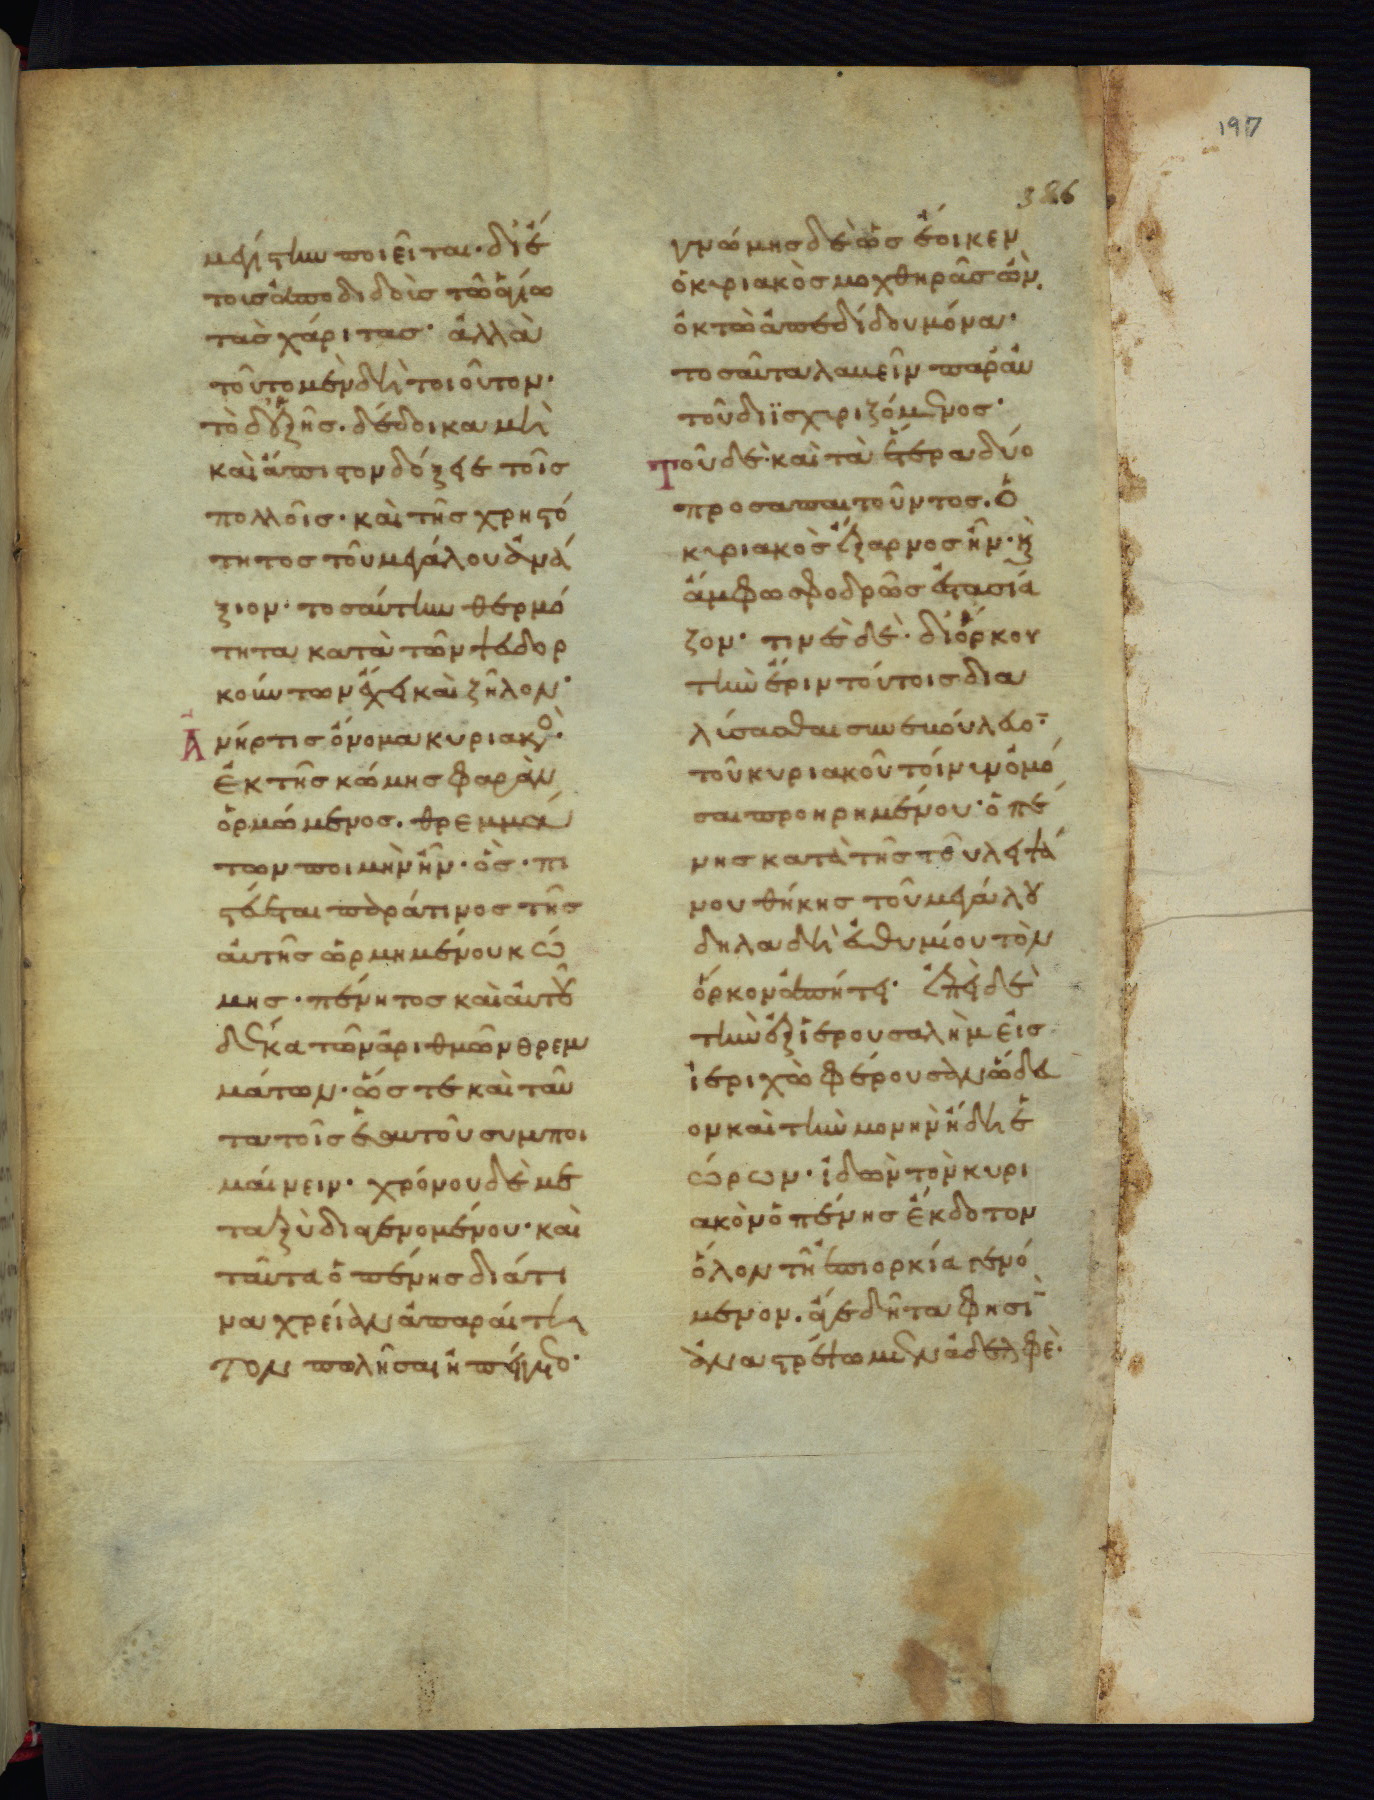 197
386
μεγίστην ποιεῖται· δι' ἔ
τους ἀποδιδοὺς τῷ ἁγίω
τὰς χάριτας· ἀλλὰ
τοῦτο μὲν δὴ τοιοῦτον·
τὸ δ' ἑξῆς. δέδοικα μὴ
καὶ ἄπιστον δόξειε τοῖς
πολλοῖς· καὶ τῆς χρηστό
τητος τοῦ μεγάλου ἀνά
ξιον· τοσαύτην θερμό
τητα κατὰ τῶν ψευδορ
κούντων ἔχει καὶ ζῆλον·
Ἀνήρ τις ὄνομα κυριακὸς·
ἐκ τῆς κώμης φαρὰν
ὁρμώμενος. θρεμμά
των ποιμὴν ἦν· ὃς· πι
στεύεται παρά τινος τῆς
αὐτῆς ὡρμημένου κώ
μης· πένητος καὶ αὐτοῦ
δέκα τῶν ἀριθμῶν θρεμ
μάτων· ὥστε καὶ ταῦ
τα τοῖς ἑαυτοῦ συμποι
μαίνειν· χρόνου δὲ με
ταξὺ διαγενομένου· καὶ
ταῦτα ὁ πένης διά τι
να χρείαν ἀπαραίτη
τον πωλῆσαι ἠπείγετο·
γνώμης δὲ ὡς ἔοικεν
ὁ κυριακὸς μοχθηρᾶς ὢν,
ὀκτὼ ἀπεδίδου μόνα·
τοσαῦτα λαβεῖν παρ' αὐ
τοῦ διϊσχυριζόμενος·
Τοῦ δὲ· καὶ τὰ ἕτερα δύο
προσαπαιτοῦντος. ὁ
κυριακὸς ἔξαρνος ἦν· κ
ἄμφω σφοδρῶς ἐστασία
ζον· τινὲς δὲ· δι' ὅρκου
τὴν ἔριν τούτοις δια
λύσασθαι συνεβούλευον·
τοῦ κυριακοῦ τοίνυν ὀμό
σαι προηρημένου· ὁ πέ
νης κατὰ τῆς τοῦ λειψά
νου θήκης τοῦ μεγάλου
δηλαδὴ εὐθυμίου τὸν
ὅρκον ἀπῄτει· ἐπεὶ δὲ
τὴν ἐξ ἱερουσαλὴμ εἰς
ἱεριχὼ φέρουσαν ὥδευ
ον καὶ τὴν μονὴν ἤδη ἑ
ώρων· ἰδὼν τὸν κυρι
ακὸν ὁ πένης ἔκδοτον
ὅλον τῇ ἐπιορκία γενό
μενον. ἄγε δῆτα φησὶ
ἀναστρέψωμεν ἀδελφὲ·